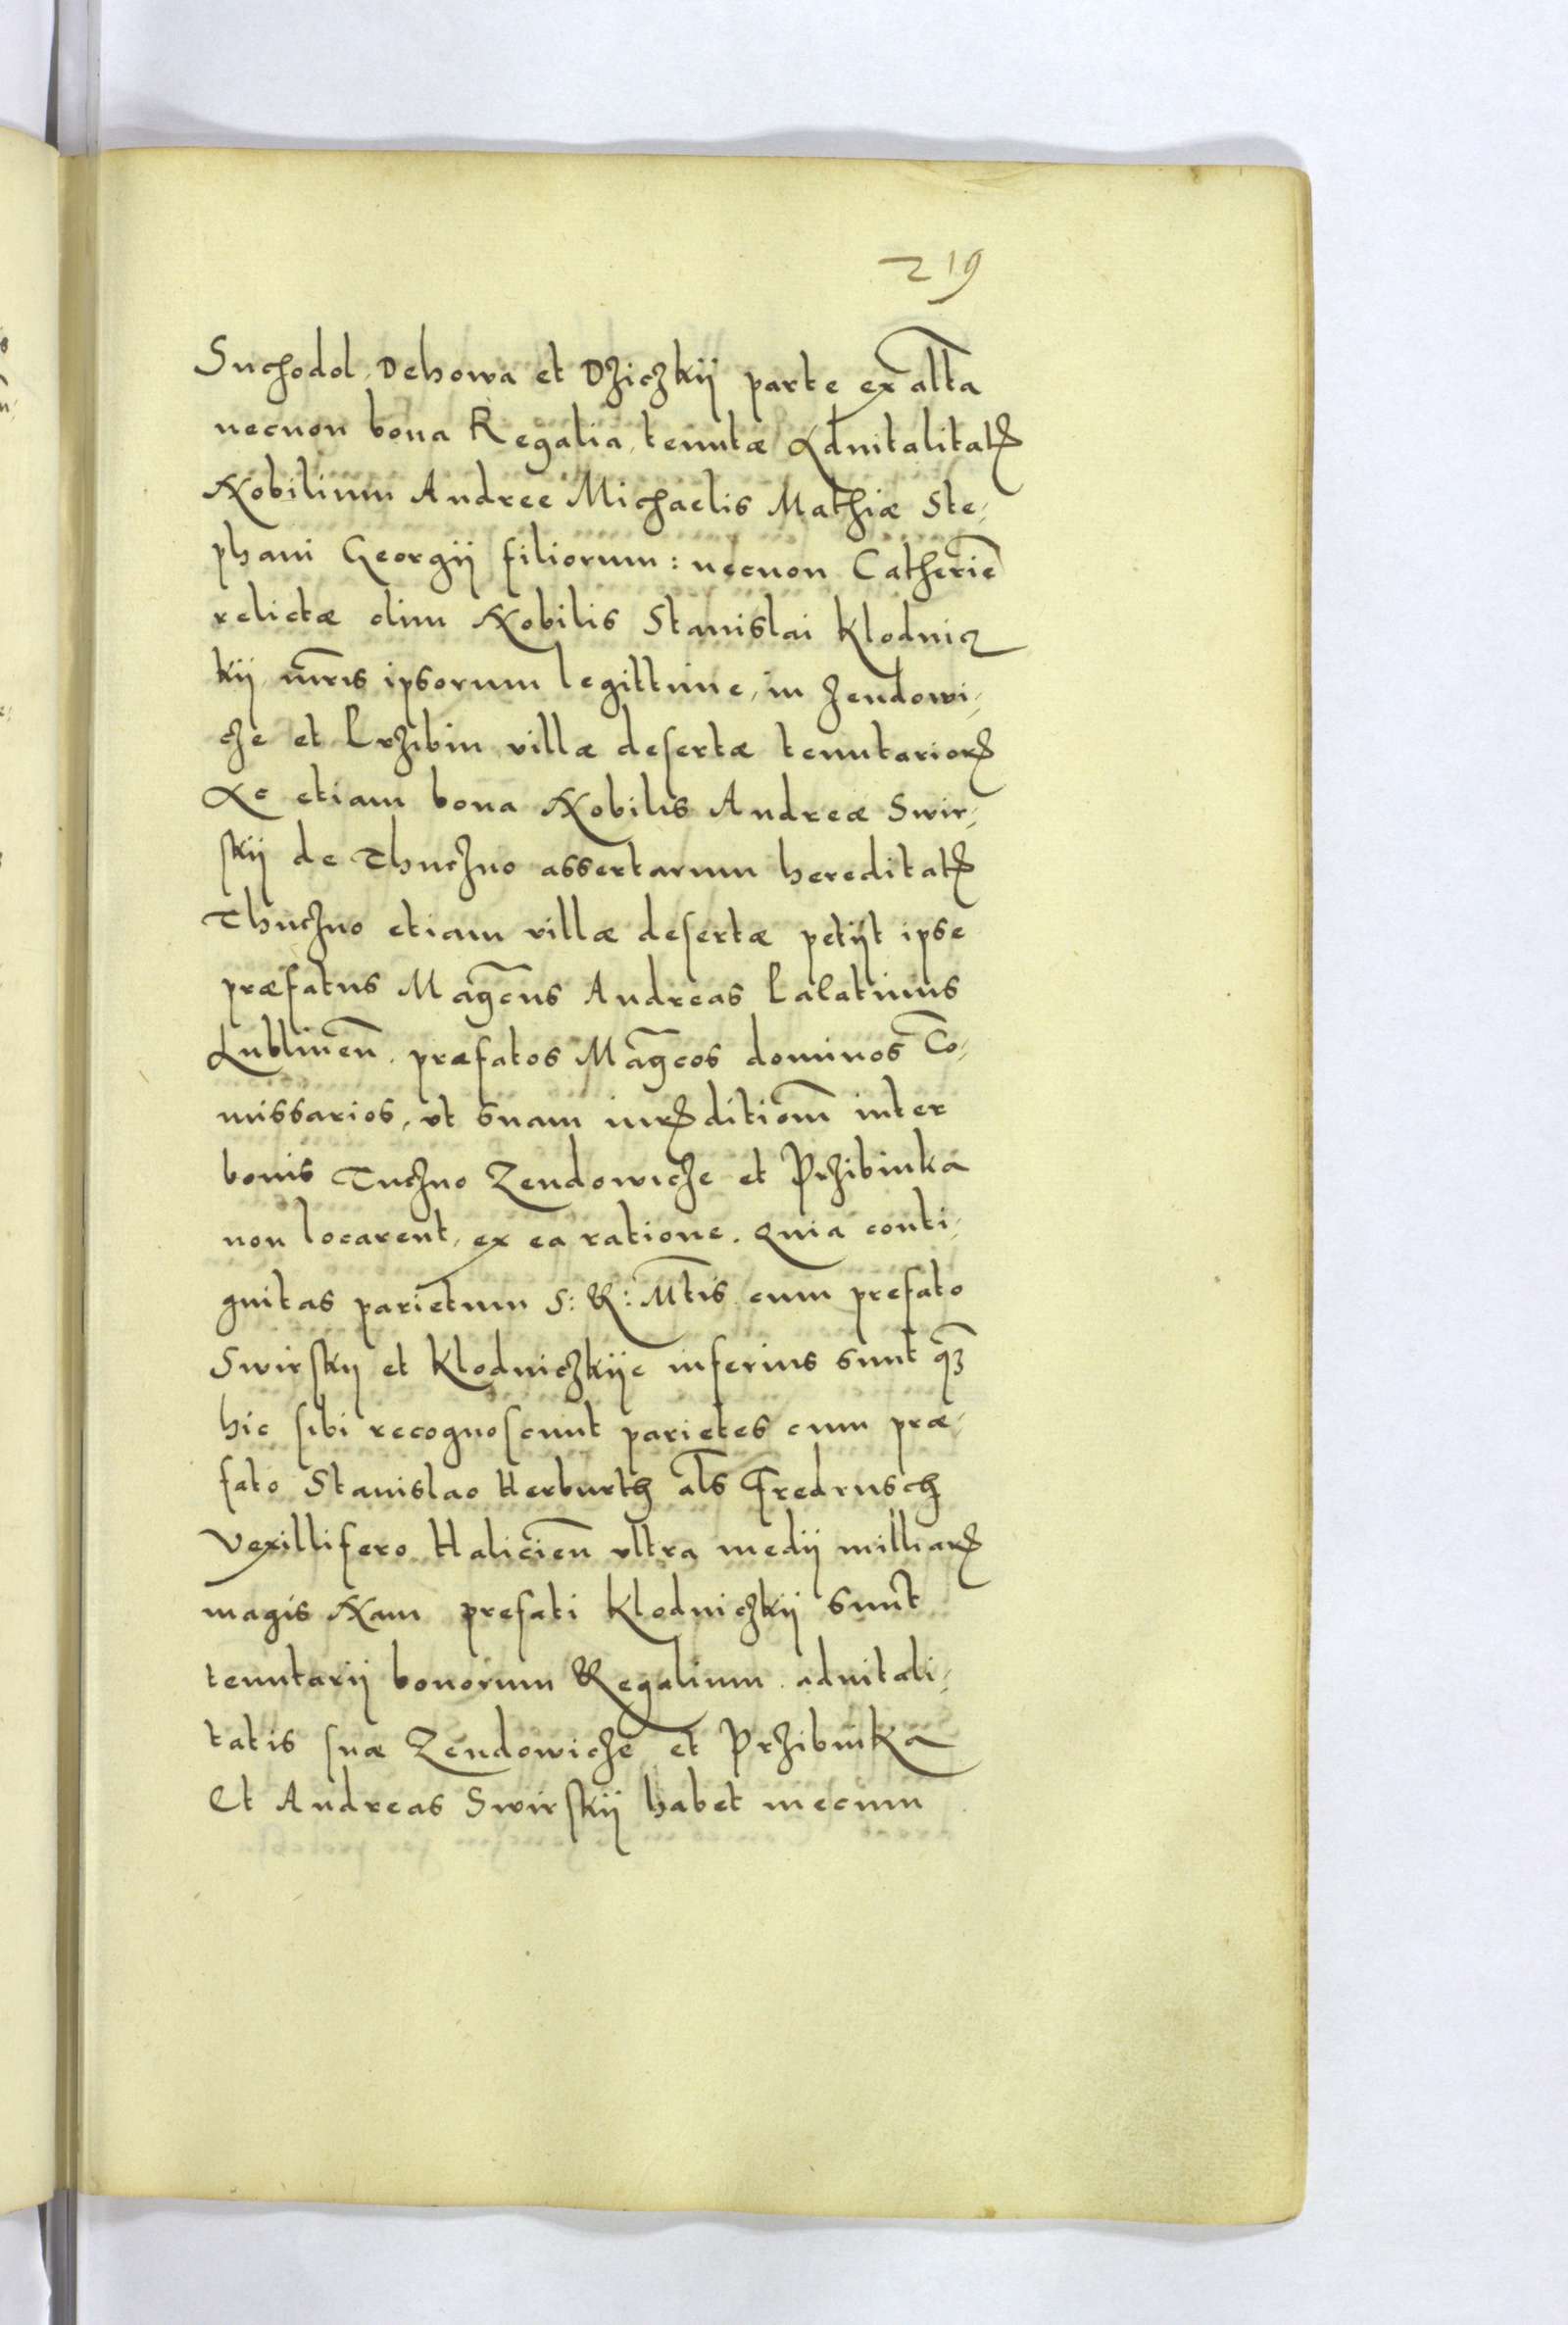 219
Suchodol, Dehowa et Dziczkij parte ex alt̄a
necnon bona Regalia, tenutæ Advitalitatꝭ
Nobilium Andree Michaelis Mathiæ Ste-
phani Georgij filiorum: necnon Catherīe
relictæ olim Nobilis Stanislai Klodnicz
kij mr̄is ipsorum legittime, in Zendowi-
cze et Przibin villæ desertæ tenutariorꝭ
Ac etiam bona Nobilis Andreæ Swir-
skij de Thuczno assertarum hereditatꝭ
Thuczno etiam villæ desertæ petijt ipse
præfatus Magc̄us Andreas Palatinus
Lublineñ. præfatos Mag̃cos dominos Cō-
missarios, vt suam iurꝭditiom̄ inter
bonis Tuczno Zendowicze et Przibinka
non locarent, ex ea ratione. Quia conti-
guitas parietum S: R: Mt̄is cum prefato
Swirskij et Klodniczkije inferius sunt qꝫ
hic sibi recognoscunt parietes cum præ-
fato Stanislao Herburth al̄s Fredrusch
Vexillifero Halicieñ vltra medij milliarꝭ
magis Nam prefati Klodniczkij sunt
tenutarij bonorum Regalium advitali-
tatis suæ Zendowicze et Przibinka
Et Andreas Swirskij habet mecum